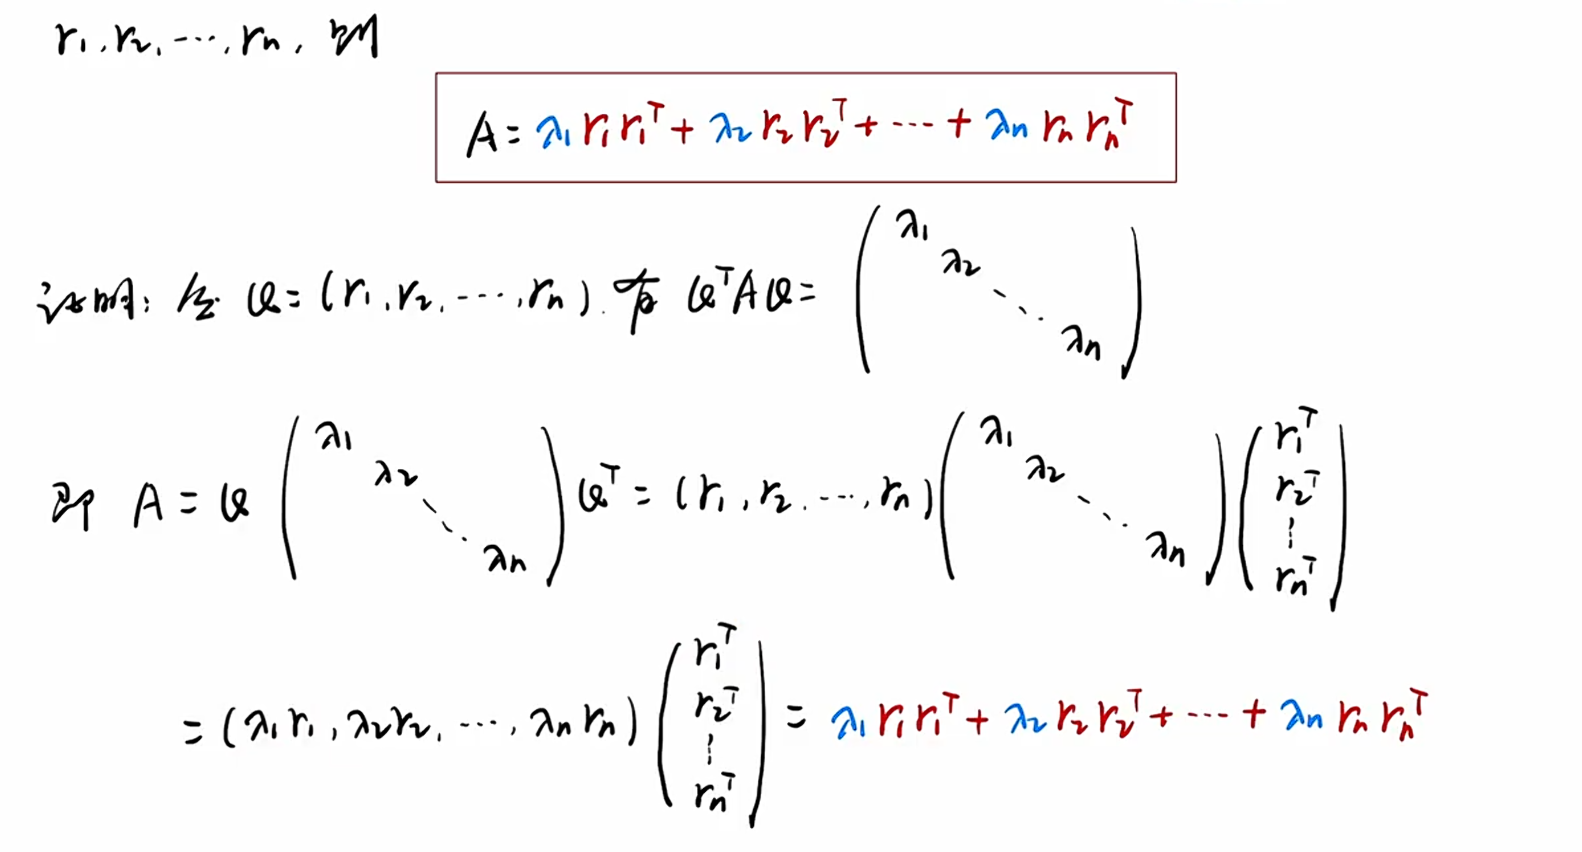 r₁, r₂, ⋯, rₙ, 则
A = λ₁r₁r₁ᵀ + λ₂r₂r₂ᵀ + ⋯ + λₙrₙrₙᵀ
证明: 令 Q = (r₁, r₂, ⋯, rₙ). 有 QᵀAQ = ( λ₁ λ₂ ⋱ λₙ )
即 A = Q ( λ₁ λ₂ ⋱ λₙ ) Qᵀ = (r₁, r₂, ⋯, rₙ) ( λ₁ λ₂ ⋱ λₙ ) ( r₁ᵀ r₂ᵀ ⋮ rₙᵀ )
= (λ₁r₁, λ₂r₂, ⋯, λₙrₙ) ( r₁ᵀ r₂ᵀ ⋮ rₙᵀ ) = λ₁r₁r₁ᵀ + λ₂r₂r₂ᵀ + ⋯ + λₙrₙrₙᵀ